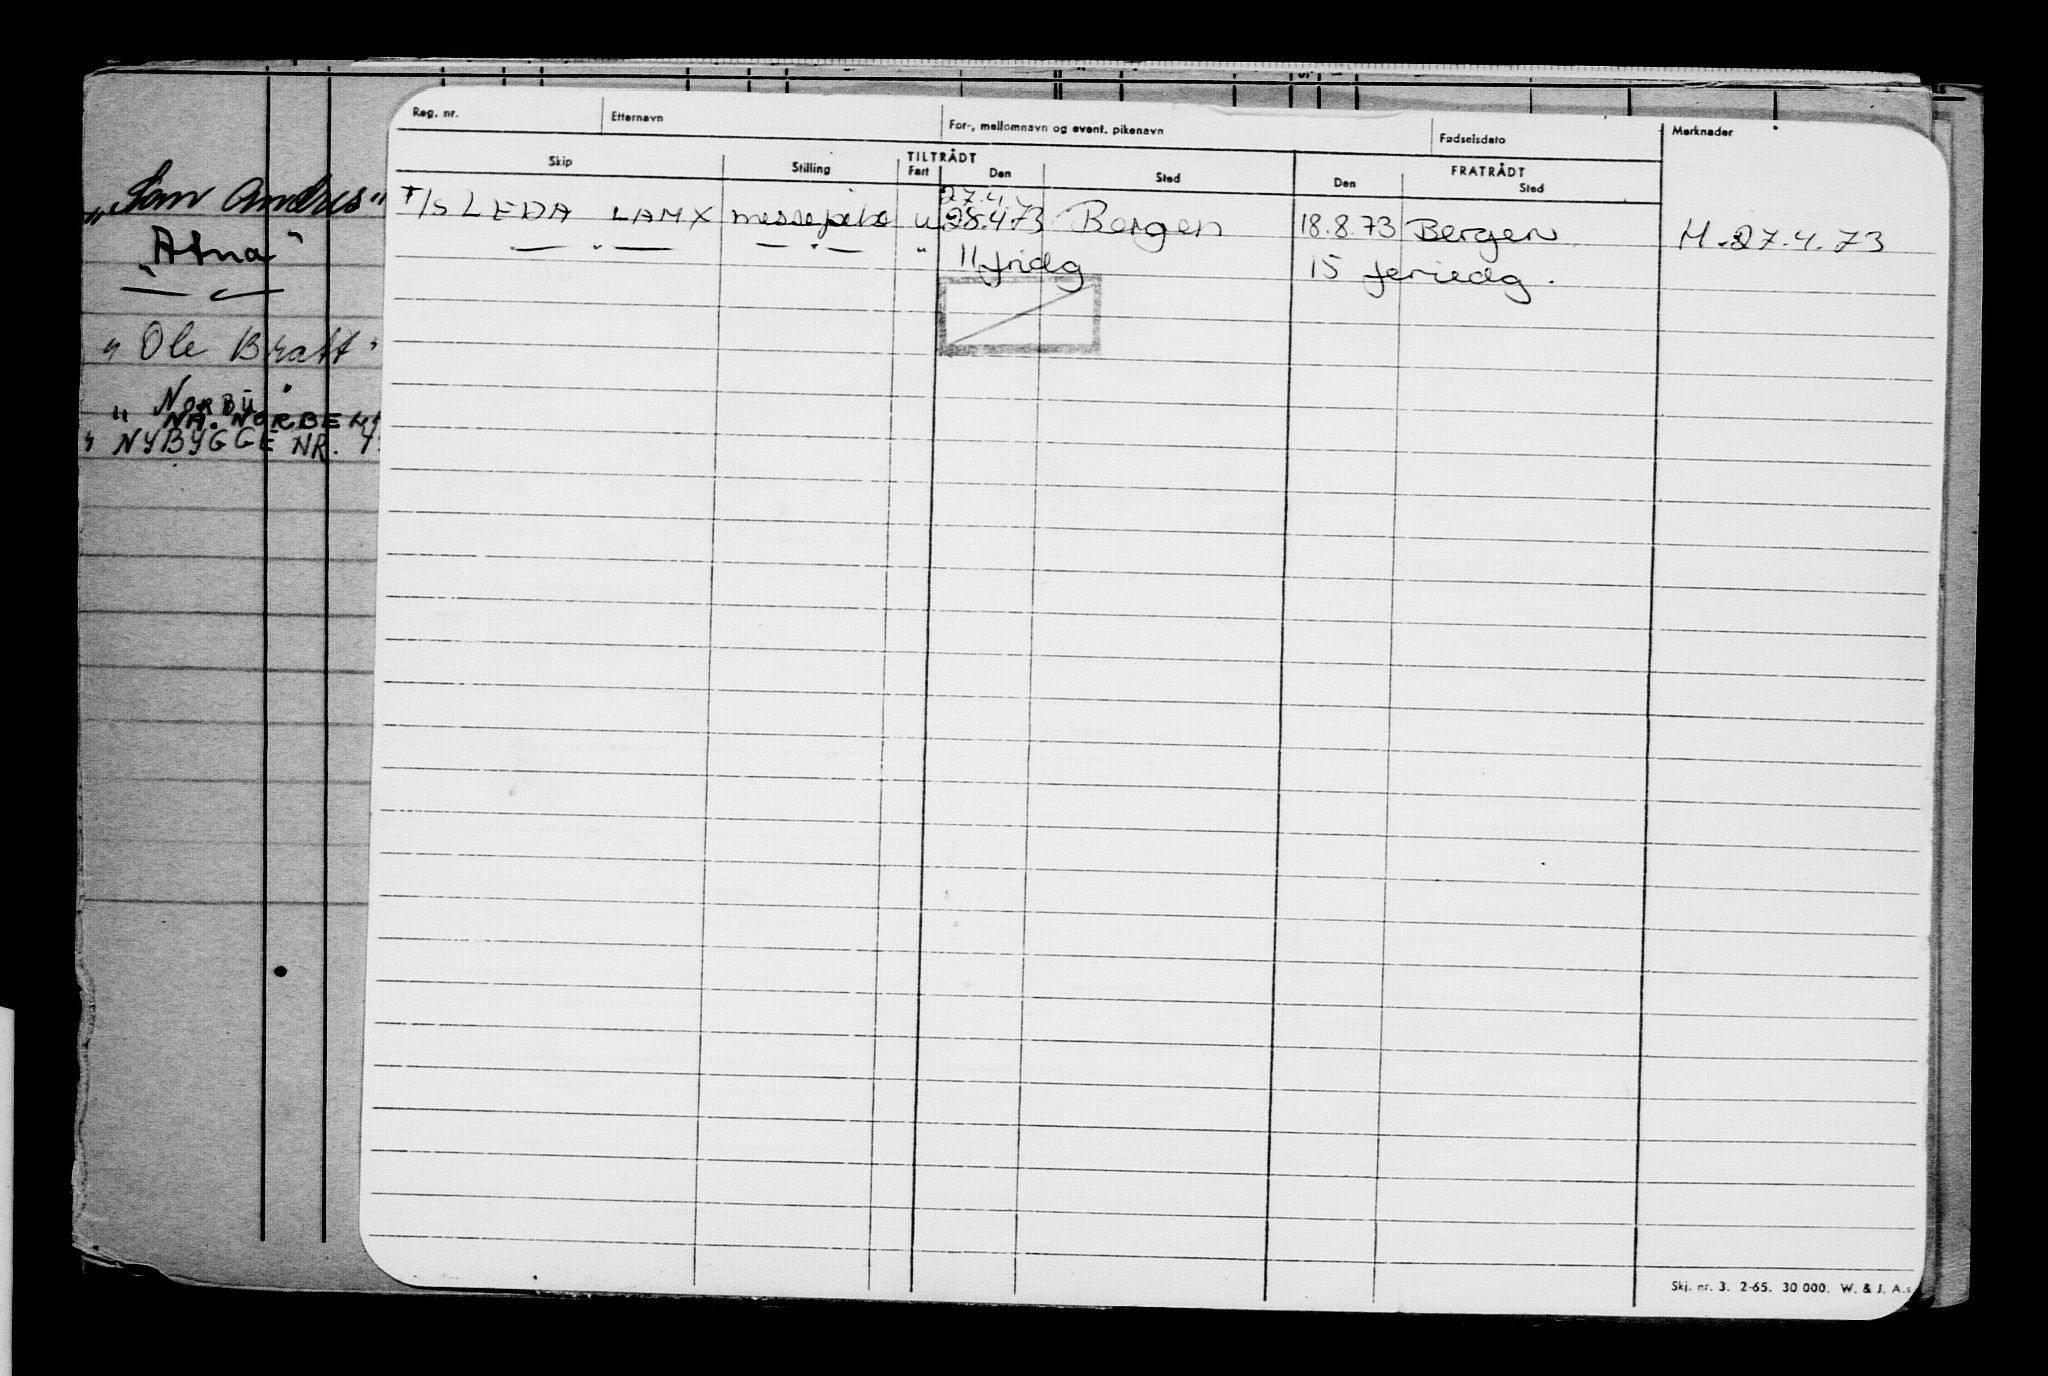 Reg. nr. Etternavn For-, mellomnavn og event. pikenavn Fødselsdato Merknader
Skip Stilling TILTRÅDT Fart Den Sted FRATRÅDT Den Sted
27.4.
T/S LEDA LAMX messepike u 28.4.73 Bergen 18.8.73 Bergen M. 27.4.73
— " — — " — " 11 fridg 15 feriedg.
"San Andres"
"Atna"
— " —
"Ole Bratt"
NORBU
" NA. NORBE
" NYBYGGE NR.
Skj. nr. 3. 2-65. 30 000. W. & J. A.s